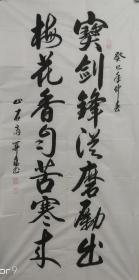 癸巳年仲春
寶劍鋒從磨勵出
梅花香自苦寒來
or9